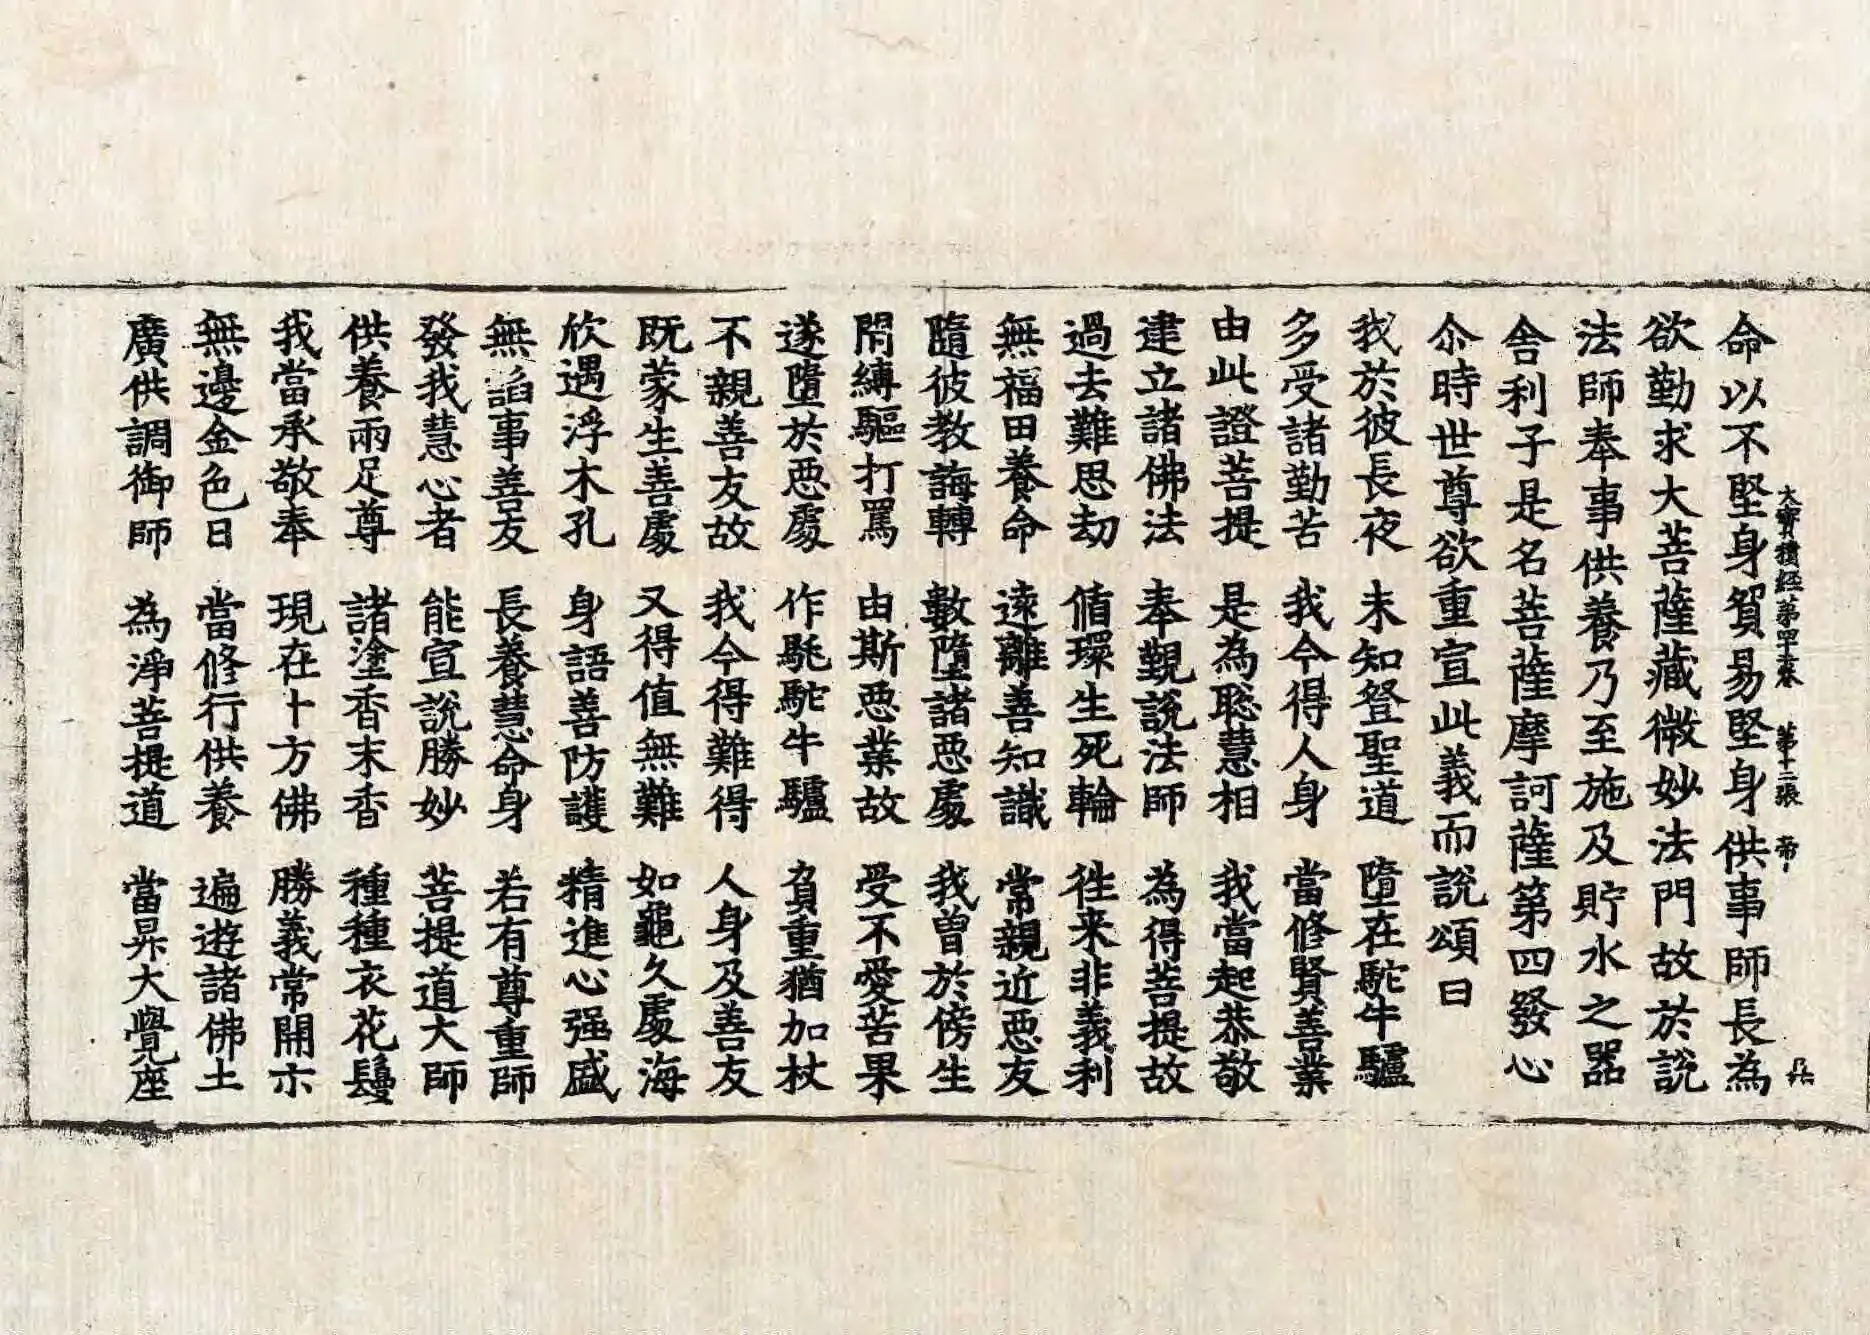 大寶積經第四十五卷 第十二張 帝
命以不堅身貿易堅身供事師長為
欲勤求大菩薩藏微妙法門故於說
法師奉事供養乃至施及貯水之器
舍利子是名菩薩摩訶薩第四發心
尒時世尊欲重宣此義而說頌曰
我於彼長夜 未知登聖道 墮在駝牛驢
多受諸勤苦 我今得人身 當修賢善業
由此證菩提 是為聡慧相 我當起恭敬
建立諸佛法 奉覲說法師 為得菩提故
過去難思劫 循環生死輪 徃来非義利
無福田養命 遠離善知識 常親近惡友
隨彼教誨轉 數墮諸惡處 我曾於傍生
閇縛驅打罵 由斯惡業故 受不愛苦果
遂墮於惡處 作駞駝牛驢 負重猶加杖
不親善友故 我今得難得 人身及善友
既蒙生善處 又得值無難 如龜久處海
欣遇浮木孔 身語善防護 精進心强盛
無諂事善友 長養慧命身 若有尊重師
發我慧心者 能宣說勝妙 菩提道大師
供養兩足尊 諸塗香末香 種種衣花鬘
我當承敬奉 現在十方佛 勝義常開示
無邊金色日 當修行供養 遍遊諸佛土
廣供調御師 為淨菩提道 當昇大覺座